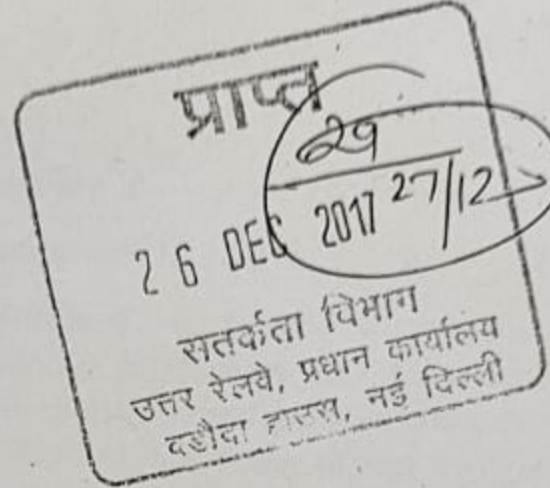 प्राप्त
29
26 DEC 2017 27/12
सतर्कता विभाग
उत्तर रेलवे, प्रधान कार्यालय
बडौदा हाउस, नई दिल्ली